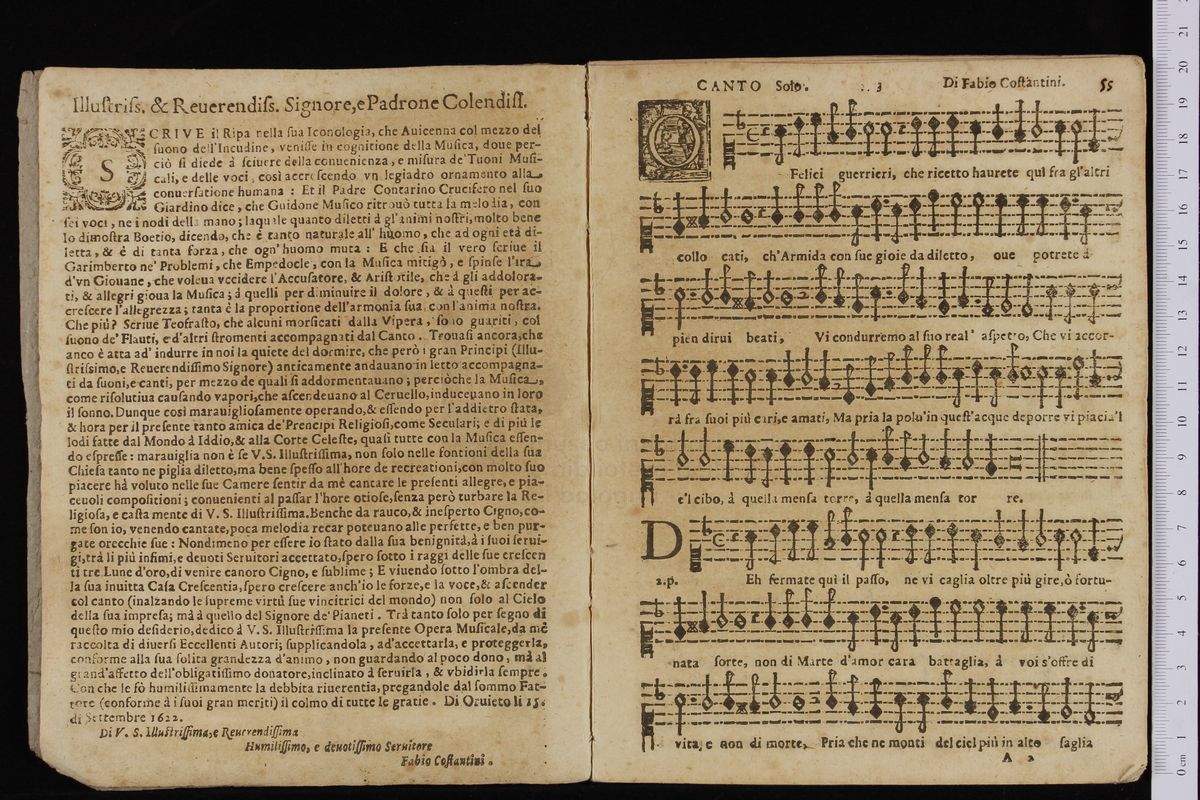 Illustriss. & Reuerendiss. Signore, e Padrone Colendiss.
SCRIVE il Ripa nella sua Iconologia, che Auicenna col mezzo del
suono dell'Incudine, venisse in cognitione della Musica, doue per-
ciò si diede à sciuere della conuenienza, e misura de' Tuoni Musi-
cali, e delle voci, così accrescendo vn legiadro ornamento alla
conuersatione humana : Et il Padre Contarino Crucifero nel suo
Giardino dice, che Guidone Musico ritrouò tutta la melodia, con
sei voci, ne i nodi della mano; laquale quanto diletti à gl'animi nostri, molto bene
lo dimostra Boetio, dicendo, che è tanto naturale all' huomo, che ad ogni età di-
letta, & è di tanta forza, che ogn'huomo muta : E che sia il vero scriue il
Garimberto ne' Problemi, che Empedocle, con la Musica mitigò, e spinse l'ira
d'vn Giouane, che voleua vccidere l'Accusatore, & Aristotile, che à gli addolora-
ti, & allegri gioua la Musica; à quelli per diminuire il dolore, & à questi per ac-
crescere l'allegrezza; tanta è la proportione dell'armonia sua con l'anima nostra.
Che più? Scriue Teofrasto, che alcuni morsicati dalla Vipera, sono guariti, col
suono de' Flauti, e d'altri stromenti accompagnati dal Canto. Trouasi ancora, che
anco è atta ad' indurre in noi la quiete del dormire, che però i gran Principi (Illu-
strissimo, e Reuerendissimo Signore) anticamente andauano in letto accompagna-
ti da suoni, e canti, per mezzo de quali si addormentauano; perciòche la Musica,
come risolutiua causando vapori, che ascendeuano al Ceruello, induceuano in loro
il sonno. Dunque così marauigliosamente operando, & essendo per l'addietro stata,
& hora per il presente tanto amica de' Prencipi Religiosi, come Seculari; e di più le
lodi fatte dal Mondo à Iddio, & alla Corte Celeste, quasi tutte con la Musica essen-
do espresse : marauiglia non è se V.S. Illustrissima, non solo nelle fontioni della sua
Chiesa tanto ne piglia diletto, ma bene spesso all'hore de recreationi, con molto suo
piacere hà voluto nelle sue Camere sentir da mè cantare le presenti allegre, e pia-
ceuoli compositioni; conuenienti al passar l'hore otiose, senza però turbare la Re-
ligiosa, e casta mente di V. S. Illustrissima. Benche da rauco, & inesperto Cigno, co-
me son io, venendo cantate, poca melodia recar poteuano alle perfette, e ben pur-
gate orecchie sue : Nondimeno per essere io stato dalla sua benignità, à i suoi serui-
gi, trà li più infimi, e deuoti Seruitori accettato, spero sotto i raggi delle sue crescen
ti tre Lune d'oro, di venire canoro Cigno, e sublime; E viuendo sotto l'ombra del-
la sua inuitta Casa Crescentia, spero crescere anch'io le forze, e la voce, & ascender
col canto (inalzando le supreme virtù sue vincitrici del mondo) non solo al Cielo
della sua impresa; mà à quello del Signore de' Pianeti. Trà tanto solo per segno di
questo mio desiderio, dedico à V. S. Illustrissima la presente Opera Musicale, da mè
raccolta di diuersi Eccellenti Autori; supplicandola, ad'accettarla, e proteggerla,
conforme alla sua solita grandezza d'animo, non guardando al poco dono, mà al
grand'affetto dell'obligatissimo donatore, inclinato à seruirla, & vbidirla sempre.
Con che le fò humilissimamente la debbita riuerentia, pregandole dal sommo Fat-
tore (conforme à i suoi gran meriti) il colmo di tutte le gratie. Di Oruieto li 15.
di Settembre 1622.
Di V. S. Illustrissima, e Reuerendissima
Humilissimo, e deuotissimo Seruitore
Fabio Costantini.
CANTO Solo. 3 Di Fabio Costantini. 55
O Felici guerrieri, che ricetto haurete quì fra gl'altri
collo cati, ch'Armida con sue gioie da diletto, oue potrete à
pien dirui beati, Vi condurremo al suo real' aspetto, Che vi accor-
rà fra suoi più cari, e amati, Ma pria la polu'in quest'acque deporre vi piacia'l
e'l cibo, à quella mensa torre, à quella mensa tor re.
D
2.p. Eh fermate quì il passo, ne vi caglia oltre più gire, ò fortu-
nata sorte, non di Marte d'amor cara battaglia, à voi s'offre di
vita, e non di morte, Pria che ne monti del ciel più in alto saglia
A 2